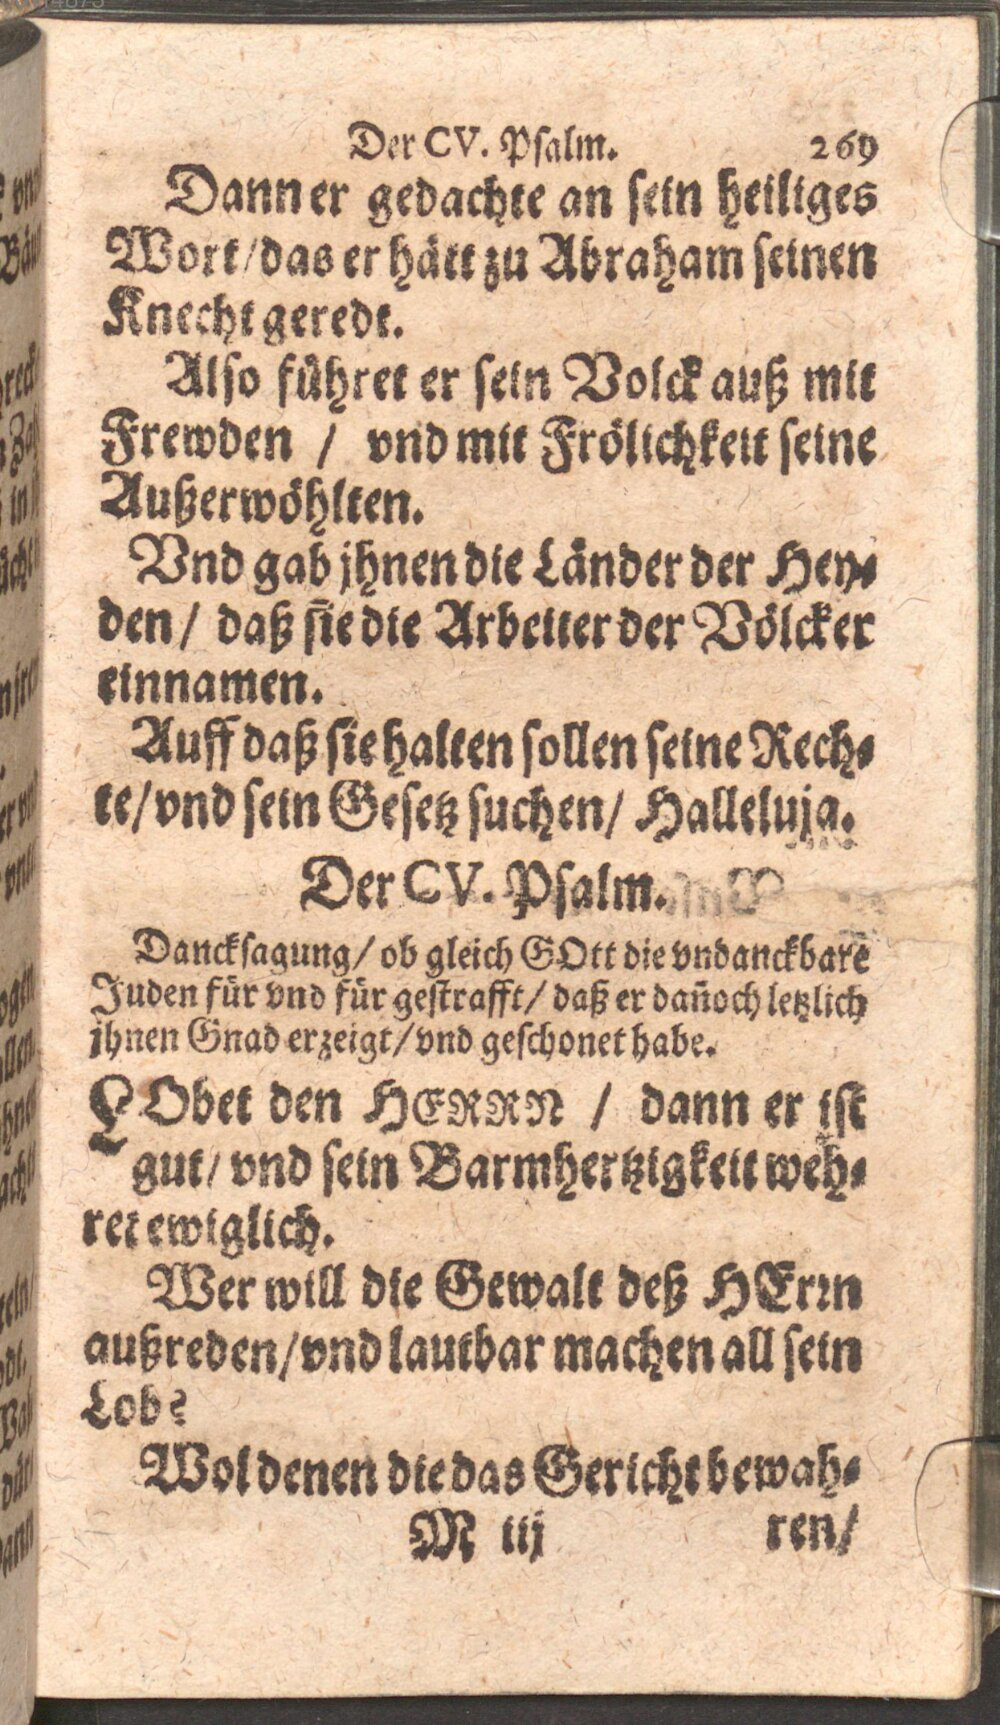 Der CV. Psalm. 269
Dann er gedachte an sein heiliges
Wort/das er hätt zu Abraham seinen
Knecht geredt.
Also führet er sein Volck auß mit
Frewden / vnd mit Frölichkeit seine
Außerwöhlten.
Vnd gab jhnen die Länder der Hey-
den/ daß sie die Arbeiter der Völcker
einnamen.
Auff daß sie halten sollen seine Rech-
te/vnd sein Gesetz suchen/ Halleluja.
Der CV. Psalm.
Dancksagung/ ob gleich GOtt die vndanckbarē
Juden für vnd für gestrafft/ daß er dañoch letzlich
jhnen Gnad erzeigt/vnd geschonet habe.
LObet den HERRN / dann er ist
gut/ vnd sein Barmhertzigkeit weh-
ret ewiglich.
Wer will die Gewalt deß HErrn
außreden/vnd lautbar machen all sein
Lob?
Wol denen die das Gericht bewah-
M iij ren/